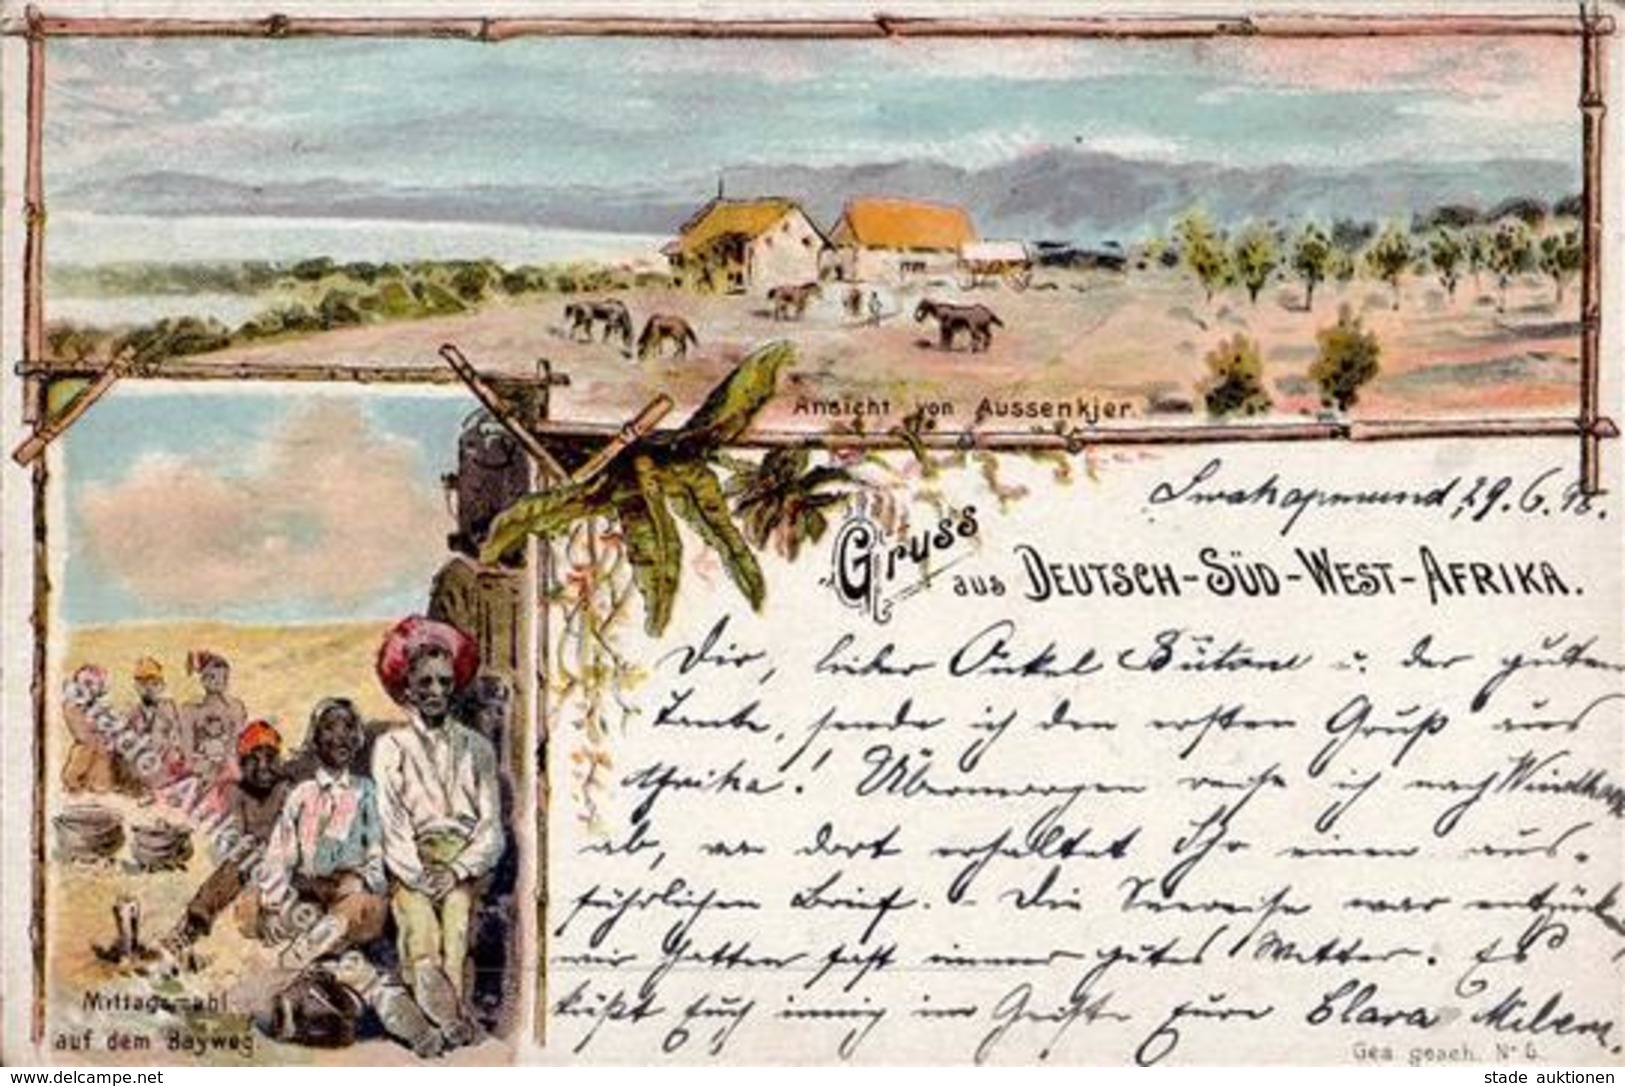 Ansicht von Aussenkjer.
Swakopmund, 29.6.98.
Gruss
aus DEUTSCH-SÜD-WEST-AFRIKA.
Dir, lieber Onkel u. der guten
Tante, sende ich den ersten Gruß aus
Afrika! Übermorgen reise ich nach Windhoek
ab, von dort erhaltet Ihr einen aus-
führlichen Brief. - Die Seereise war entzückend,
wir hatten fast immer gutes Wetter. Es
küßt Euch innig im Geiste Eure Clara
Mittagsmahl
auf dem Bayweg.
Ges. gesch. No 6.
www.delcampe.net
stade auktionen